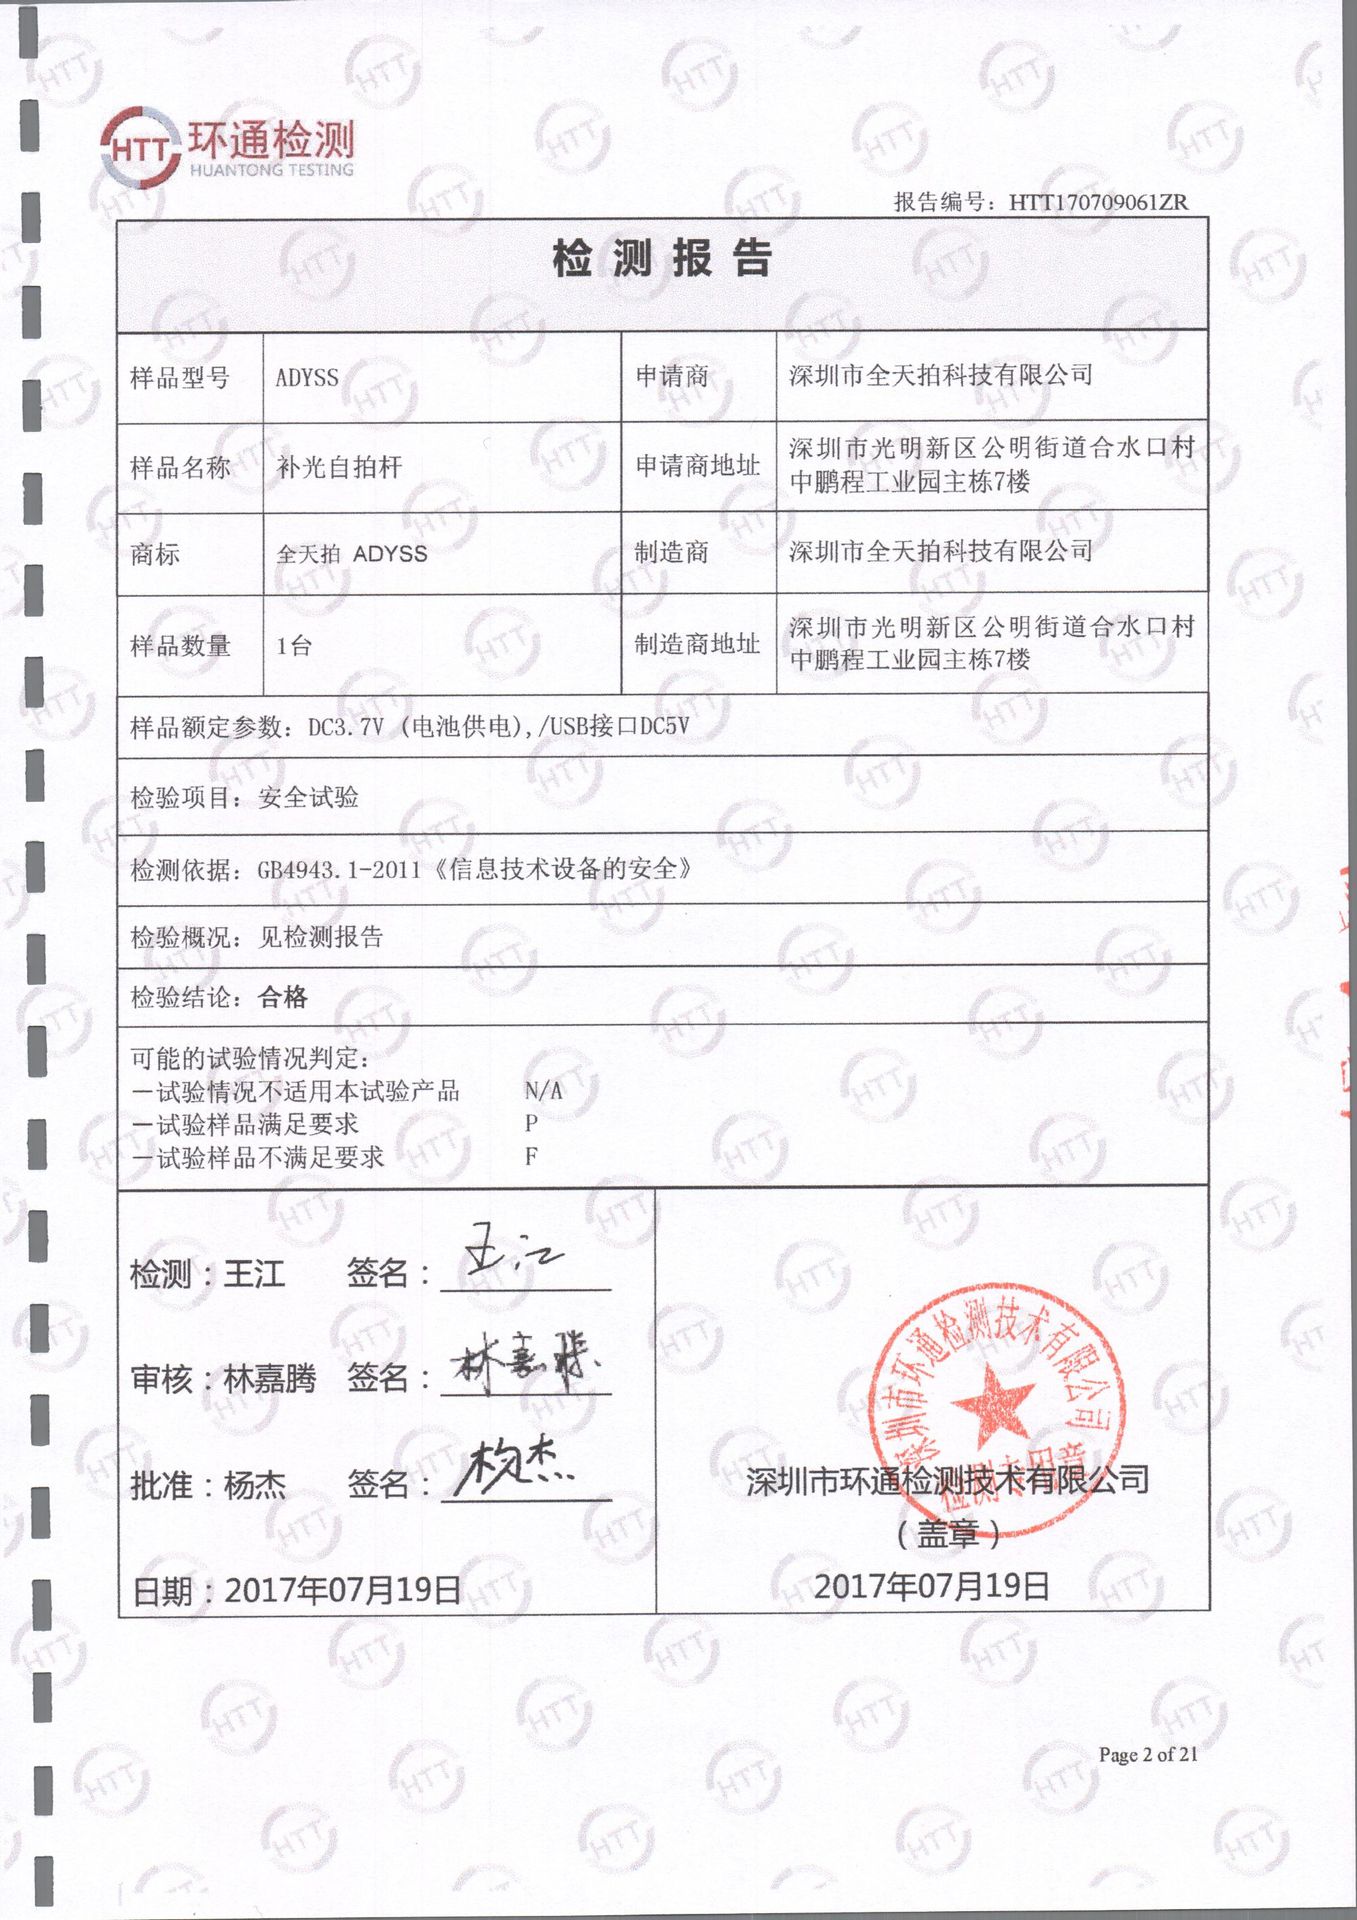 HTT 环通检测
HUANTONG TESTING
报告编号：HTT170709061ZR
检测报告
样品型号 ADYSS 申请商 深圳市全天拍科技有限公司
样品名称 补光自拍杆 申请商地址 深圳市光明新区公明街道合水口村
中鹏程工业园主栋7楼
商标 全天拍 ADYSS 制造商 深圳市全天拍科技有限公司
样品数量 1台 制造商地址 深圳市光明新区公明街道合水口村
中鹏程工业园主栋7楼
样品额定参数：DC3.7V (电池供电),/USB接口DC5V
检验项目：安全试验
检测依据：GB4943.1-2011《信息技术设备的安全》
检验概况：见检测报告
检验结论：合格
可能的试验情况判定：
—试验情况不适用本试验产品 N/A
—试验样品满足要求 P
—试验样品不满足要求 F
检测：王江 签名：王江
审核：林嘉腾 签名：林嘉腾
批准：杨杰 签名：杨杰
日期：2017年07月19日
深圳市环通检测技术有限公司
检测专用章
深圳市环通检测技术有限公司
（盖章）
2017年07月19日
Page 2 of 21